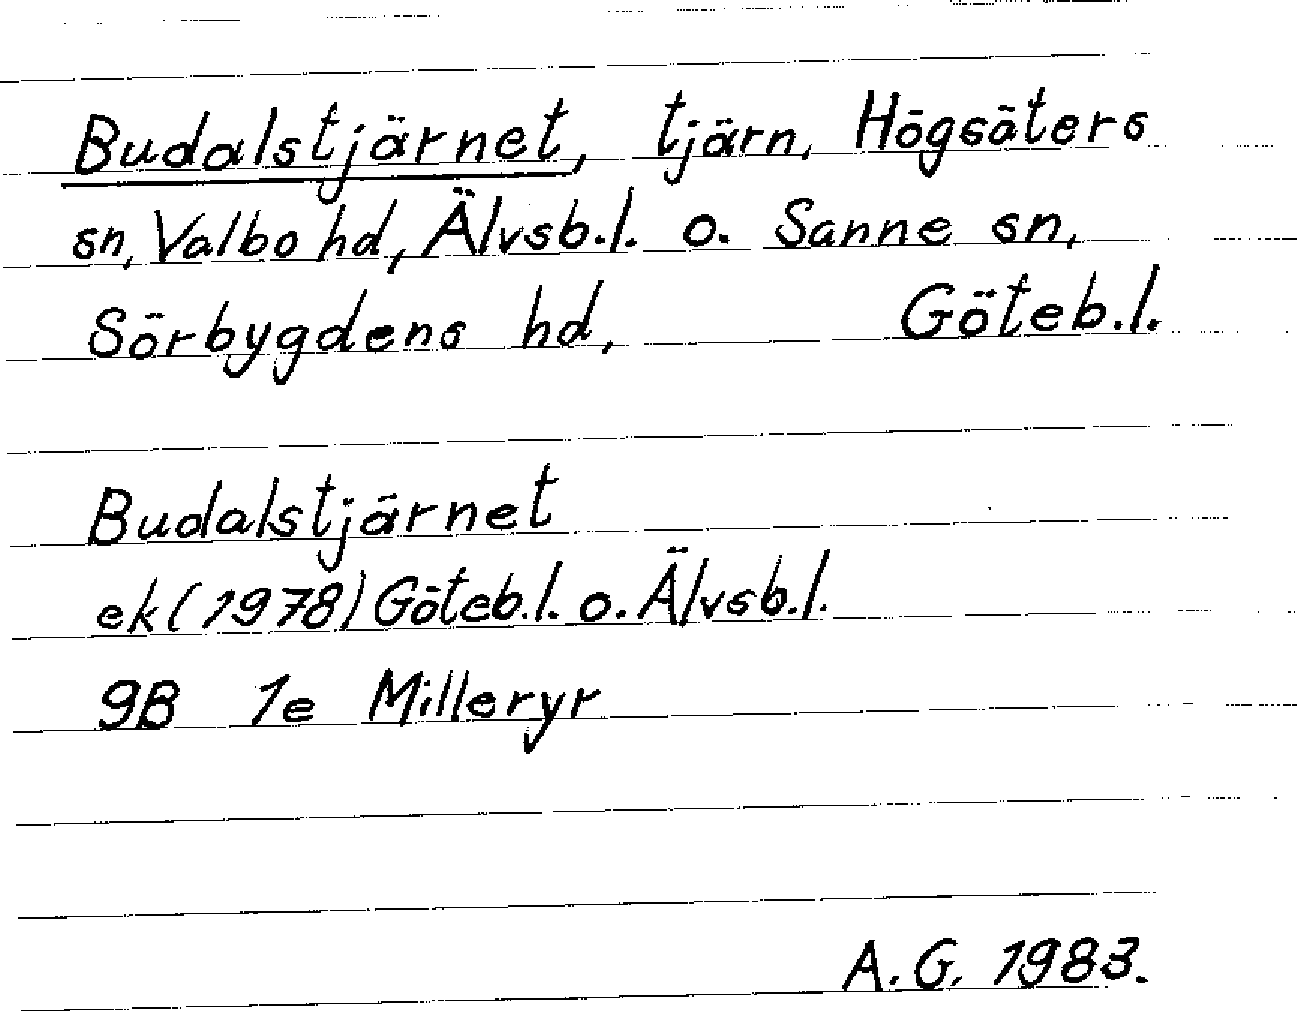 Budalstjärnet, tjärn, Högsäters
sn, Valbo hd, Älvsb.l. o. Sanne sn,
Sörbygdens hd, Göteb.l.
Budalstjärnet
ek (1978) Göteb.l. o. Älvsb.l.
9B 1e Milleryr
A.G. 1983.